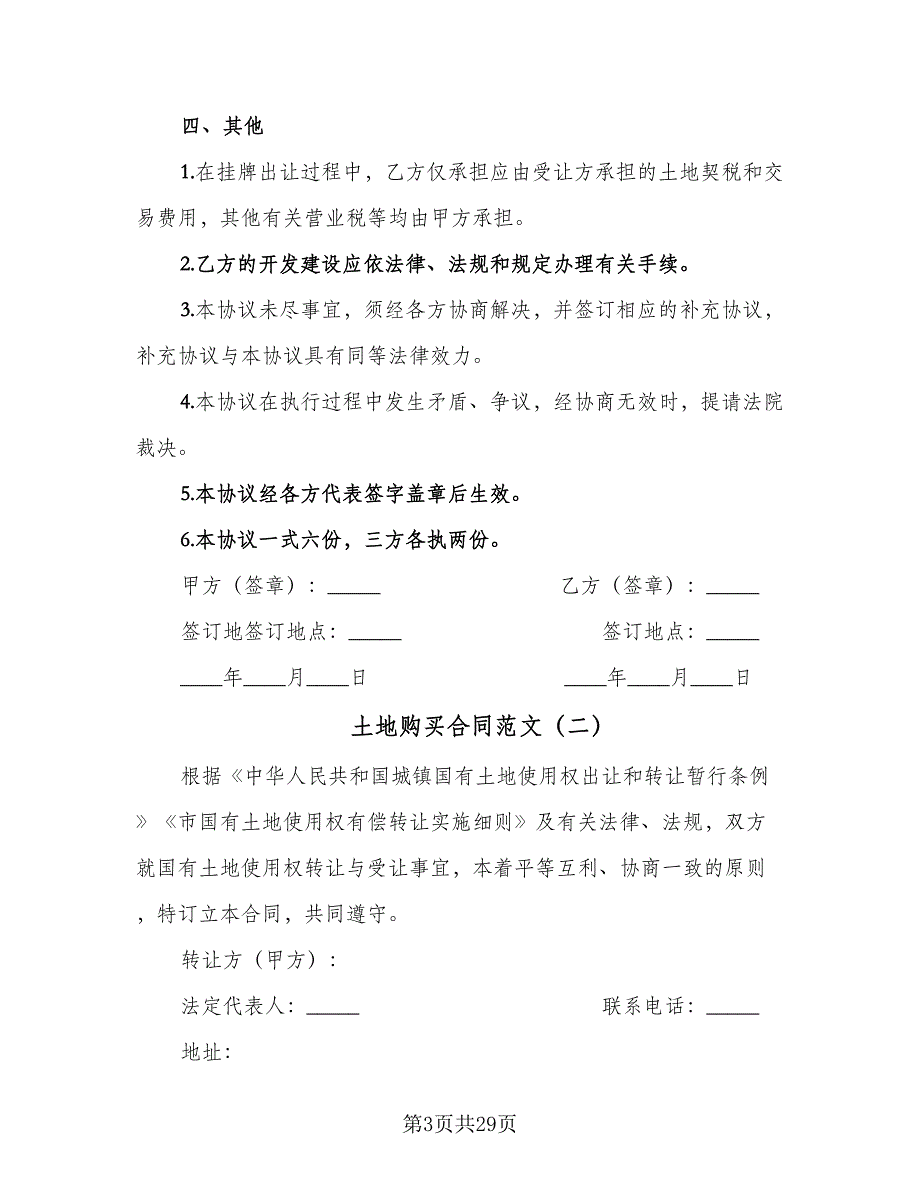 四、其他
1.在挂牌出让过程中，乙方仅承担应由受让方承担的土地契税和交
易费用，其他有关营业税等均由甲方承担。
2.乙方的开发建设应依法律、法规和规定办理有关手续。
3.本协议未尽事宜，须经各方协商解决，并签订相应的补充协议，
补充协议与本协议具有同等法律效力。
4.本协议在执行过程中发生矛盾、争议，经协商无效时，提请法院
裁决。
5.本协议经各方代表签字盖章后生效。
6.本协议一式六份，三方各执两份。
甲方（签章）：_____ 乙方（签章）：_____
签订地签订地点：_____ 签订地点：_____
____年____月____日 ____年____月____日
土地购买合同范文（二）
根据《中华人民共和国城镇国有土地使用权出让和转让暂行条例
》《市国有土地使用权有偿转让实施细则》及有关法律、法规，双方
就国有土地使用权转让与受让事宜，本着平等互利、协商一致的原则
，特订立本合同，共同遵守。
转让方（甲方）：
法定代表人：_____ 联系电话：_____
地址：
第3页共29页